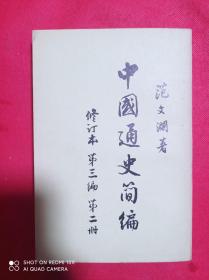 范文澜著
中國通史简编
修订本 第三编 第二册
SHOT ON REDMI 9
AI QUAD CAMERA